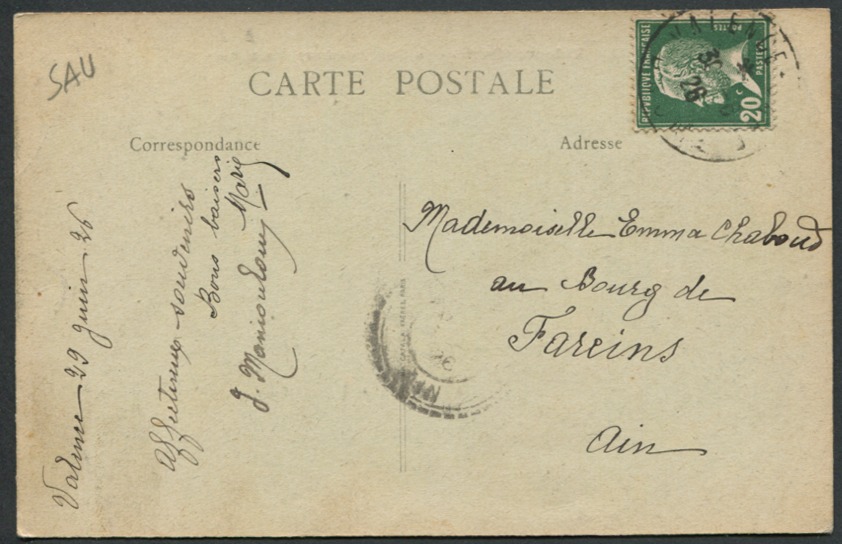 SAU
CARTE POSTALE
Correspondance
Adresse
REPUBLIQUE FRANÇAISE
POSTES
PASTEUR
20 c
VALENCE
30
26
Valence 29 Juin 26
Affectueux souvenirs
Bons baisers
Marie
J.
Mademoiselle Emma Chaboud
au Bourg de
Fareins
Ain